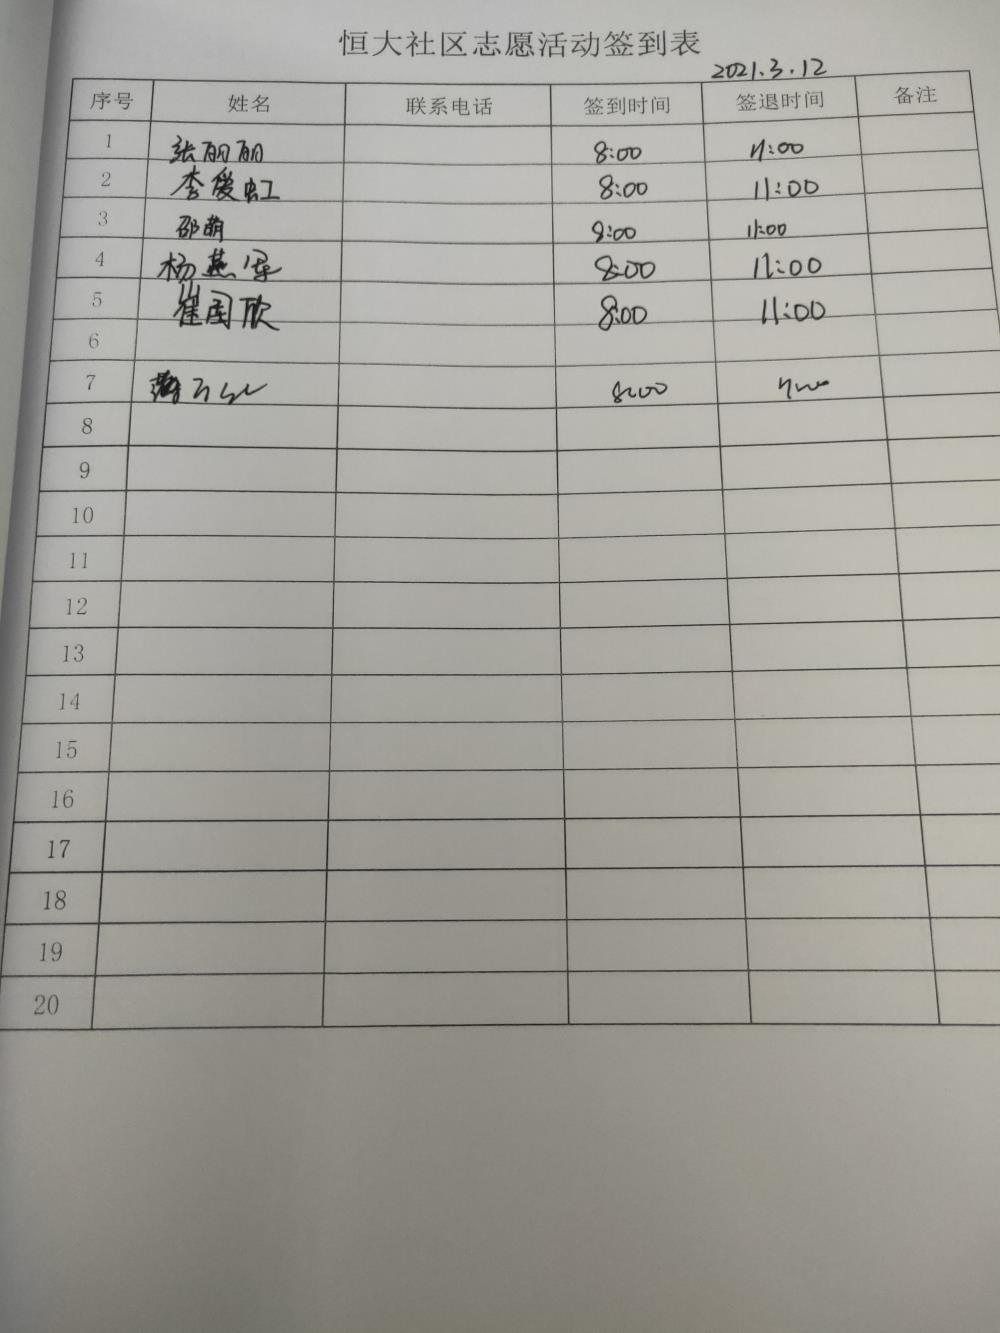 恒大社区志愿活动签到表
2021.3.12
序号 姓名 联系电话 签到时间 签退时间 备注
1 张丽丽 8:00 11:00
2 李爱虹 8:00 11:00
3 邵萌 8:00 11:00
4 杨燕 8:00 11:00
5 崔国欣 8:00 11:00
6
7 8:00
8
9
10
11
12
13
14
15
16
17
18
19
20